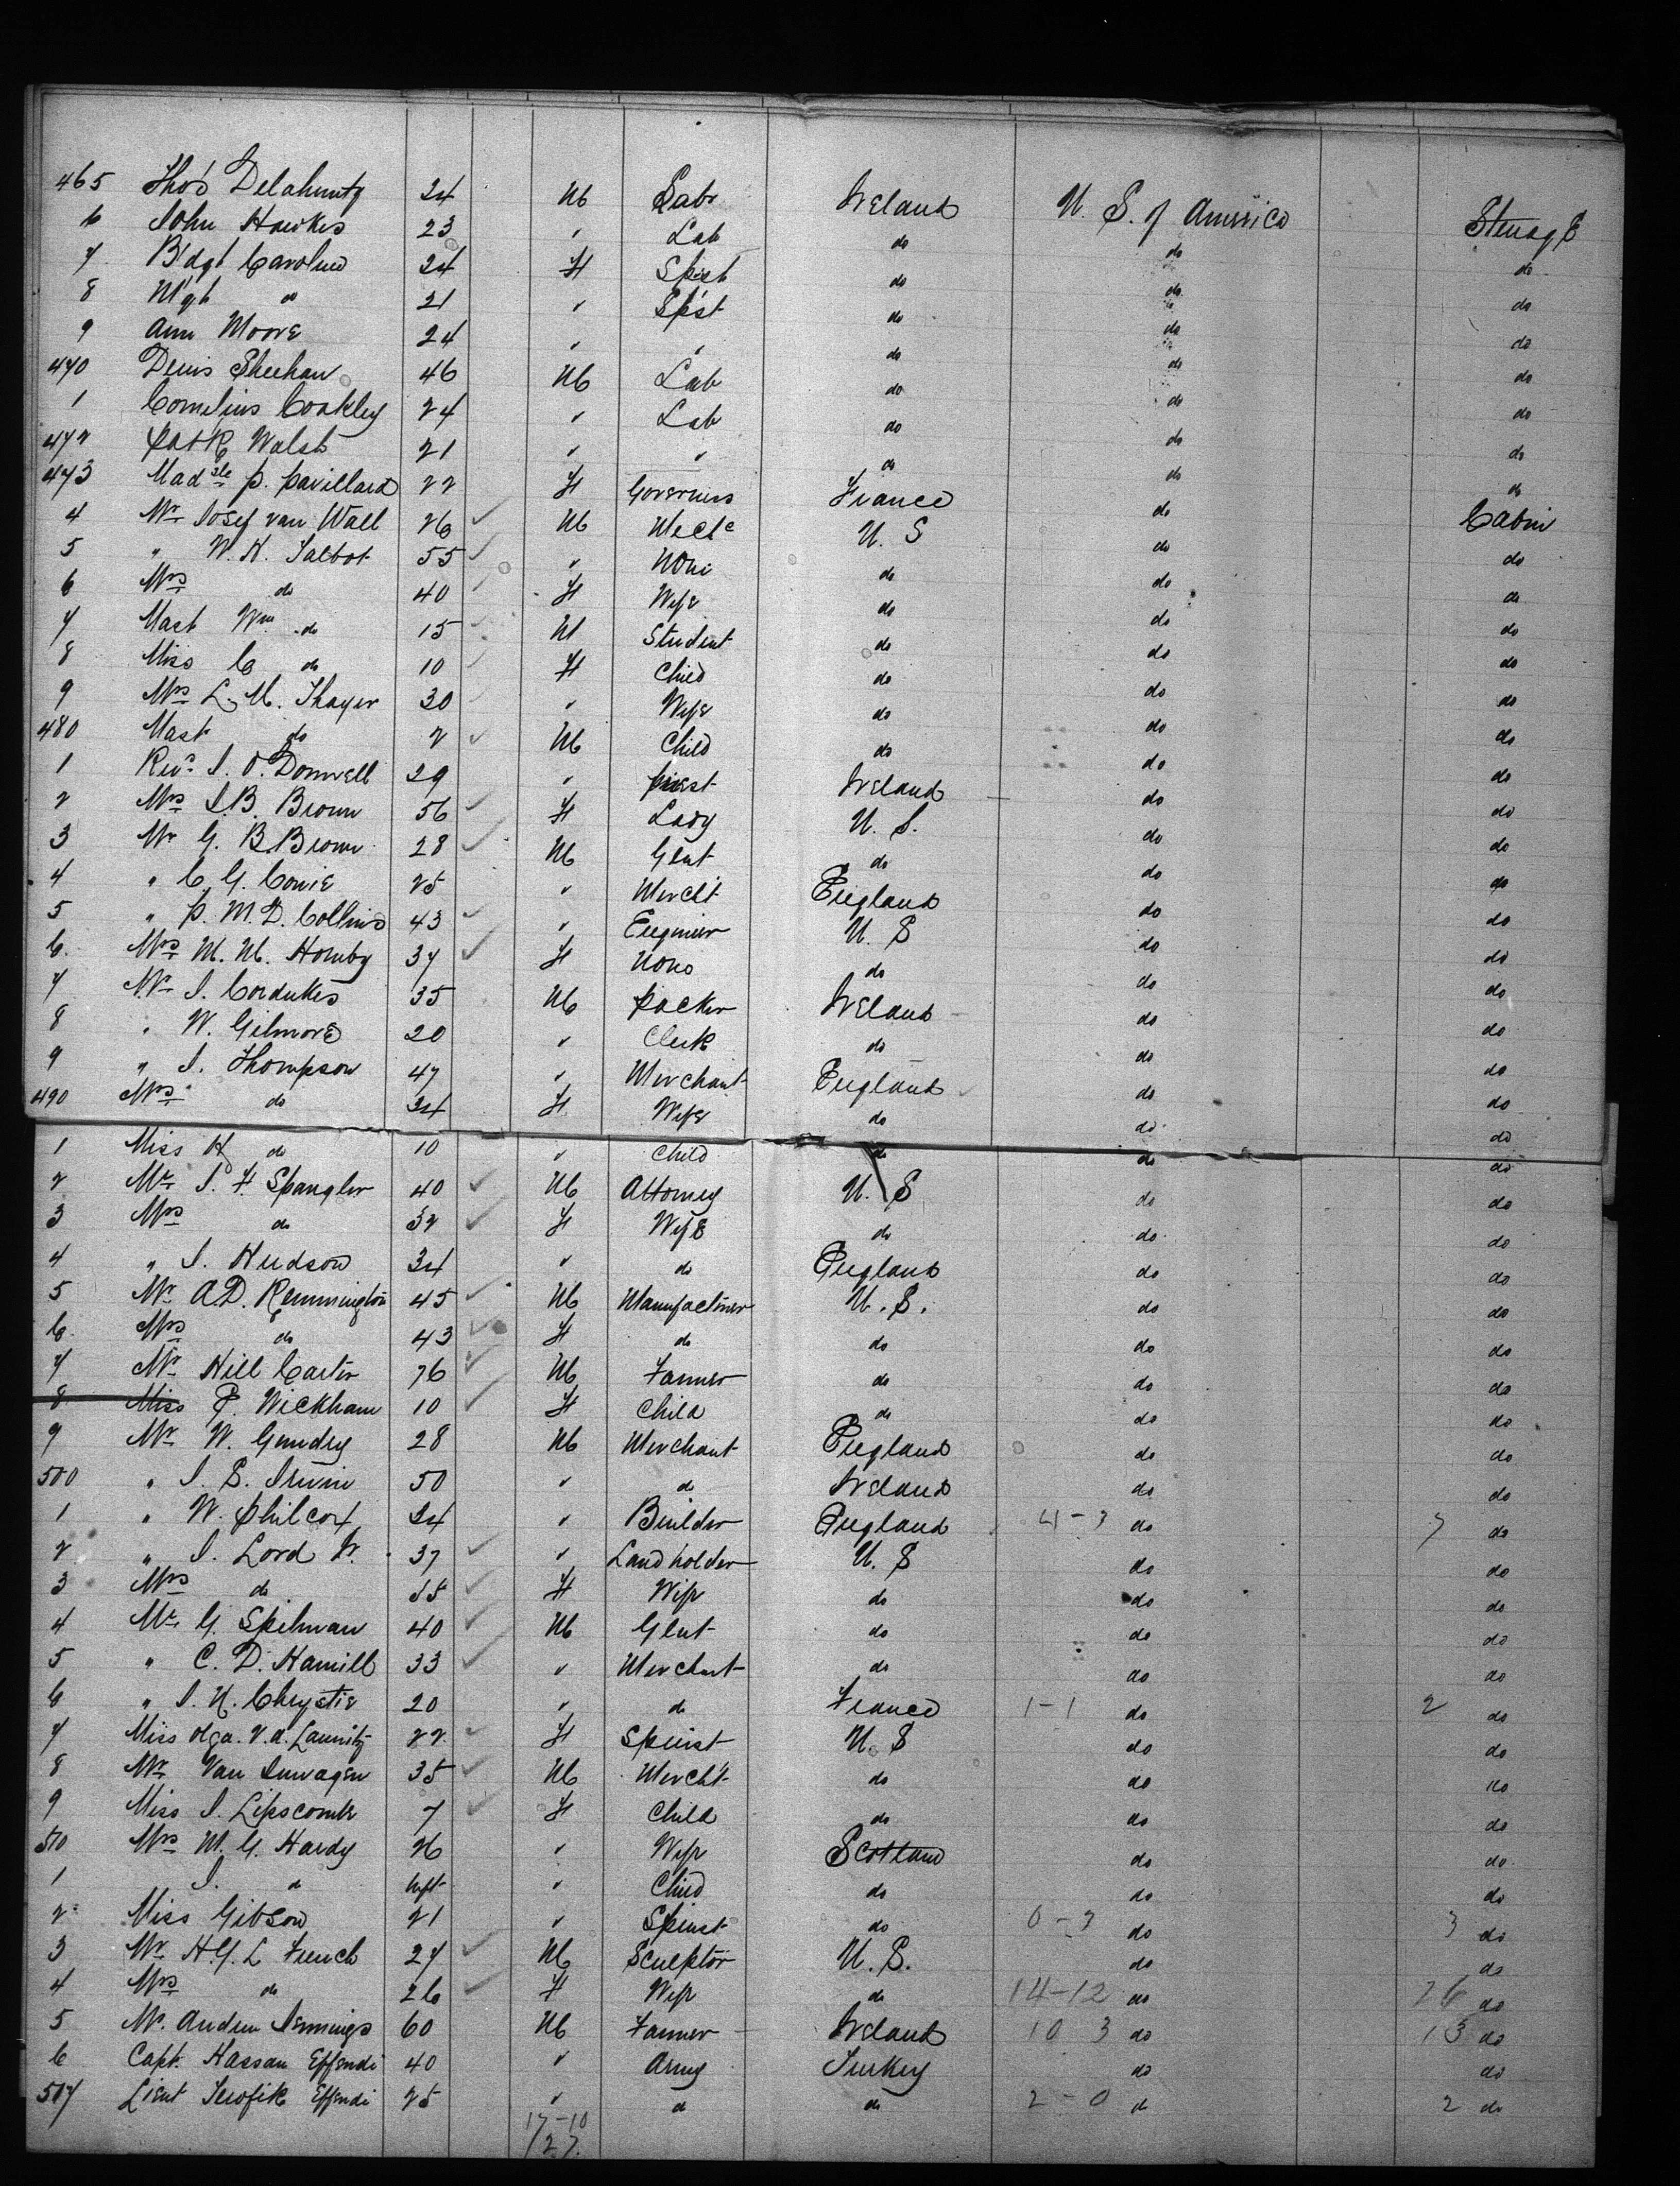 465 Thos Delahunty 24 M Labr Ireland U. S. of America Steerage
6 John Hawkes 23 " Lab do do do
7 Bidgt Carolred 24 F Spist do do do
8 Mgt do 21 " Spist do do do
9 Ann Moore 24 " " do do do
470 Denis Sheehan 46 M Lab do do do
1 Cornelius Coakley 24 " Lab do do do
472 Patk Walsh 21 " " do do do
473 Madlle P. Pavillard 22 F Governess France do Cabin
4 Mr Josef van Wall 26 M Mechc U. S do do
5 " W. H. Talbot 55 " None do do do
6 Mrs do 40 F Wife do do do
7 Mast Wm do 15 M Student do do do
8 Miss C do 10 F Child do do do
9 Mrs L. M. Thayer 30 " Wife do do do
480 Mast do 2 M Child do do do
1 Revd J. O'Donnell 29 " Priest Ireland do do
2 Mrs J. B. Brown 56 F Lady U. S. do do
3 Mr G. B. Brown 28 M Gent do do do
4 " C. G. Cowie 25 " Mercht England do do
5 " P. M. D. Collins 43 " Engineer U. S do do
6 Mrs M. M. Hornby 37 F None do do do
7 Mr J. Cordukes 35 M Packer Ireland do do
8 " W. Gilmore 20 " Clerk do do do
9 " J. Thompson 47 " Merchant England do do
490 Mrs do 34 F Wife do do do
1 Miss H do 10 " Child do do do
2 Mr J. F. Spangler 40 M Attorney U. S do do
3 Mrs do 32 F Wife do do do
4 " J. Hudson 34 " do England do do
5 Mr A. D. Remmington 45 M Manufacturer U. S. do do
6 Mrs do 43 F do do do do
7 Mr Hill Carter 76 M Farmer do do do
8 Miss P. Wickham 10 F Child do do do
9 Mr W. Gundry 28 M Merchant England do do
500 " J. S. Irwin 50 " do Ireland do do
1 " W. Philcox 24 " Builder England 4-3 do 7 do
2 " J. Lord Jr. 37 " Landholder U. S do do
3 Mrs do 35 F Wife do do do
4 Mr G. Spilman 40 M Gent do do do
5 " C. D. Hamill 33 " Merchant do do do
6 " J. N. Chrystie 20 " do France 1-1 do 2 do
7 Miss Olga V. a. Launitz 22 F Spinst U. S do do
8 Mr Van Inwagen 35 M Mercht do do do
9 Miss J. Lipscomb 7 F Child do do do
510 Mrs M. G. Hardy 26 " Wife Scotland do do
1 J. do Inft " Child do do do
2 Miss Gibson 21 " Spinst do 0-3 do 3 do
3 Mr H. G. L French 27 M Sculptor U. S. do do
4 Mrs do 26 F Wife do 14-12 do 26 do
5 Mr. Andrew Jennings 60 M Farmer Ireland 10 3 do 13 do
6 Capt. Hassan Effendi 40 " Army Turkey do do
517 Lieut Tewfik Effendi 25 " do do 2-0 do 2 do
17-10
27.